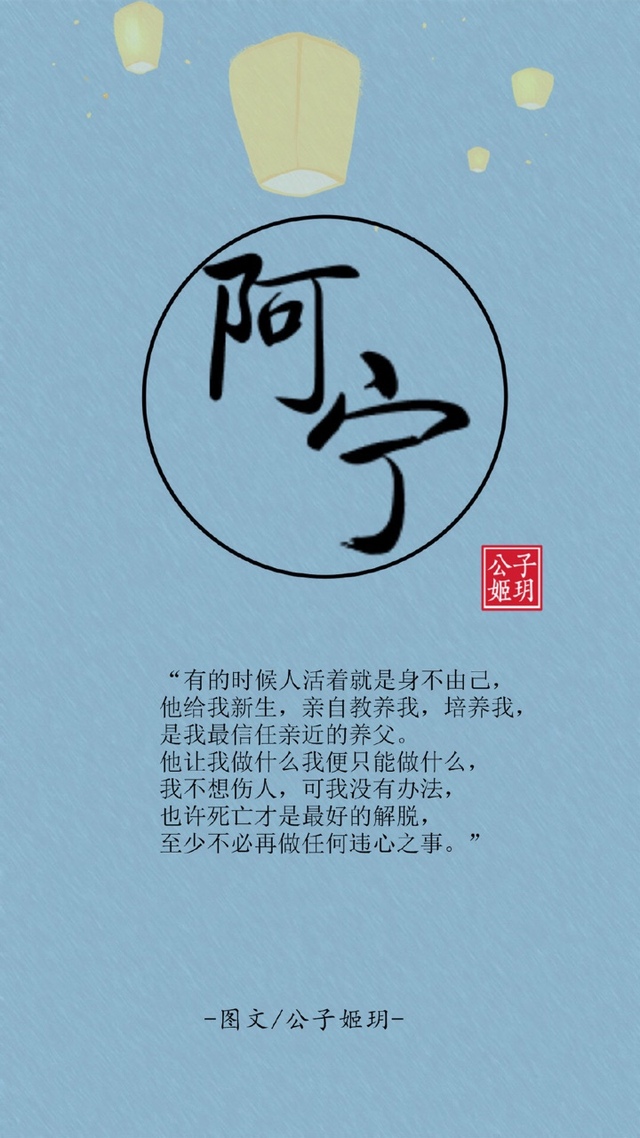 阿宁
公子
姬玥
“有的时候人活着就是身不由己，
他给我新生，亲自教养我，培养我，
是我最信任亲近的养父。
他让我做什么我便只能做什么，
我不想伤人，可我没有办法，
也许死亡才是最好的解脱，
至少不必再做任何违心之事。”
-图文/公子姬玥-